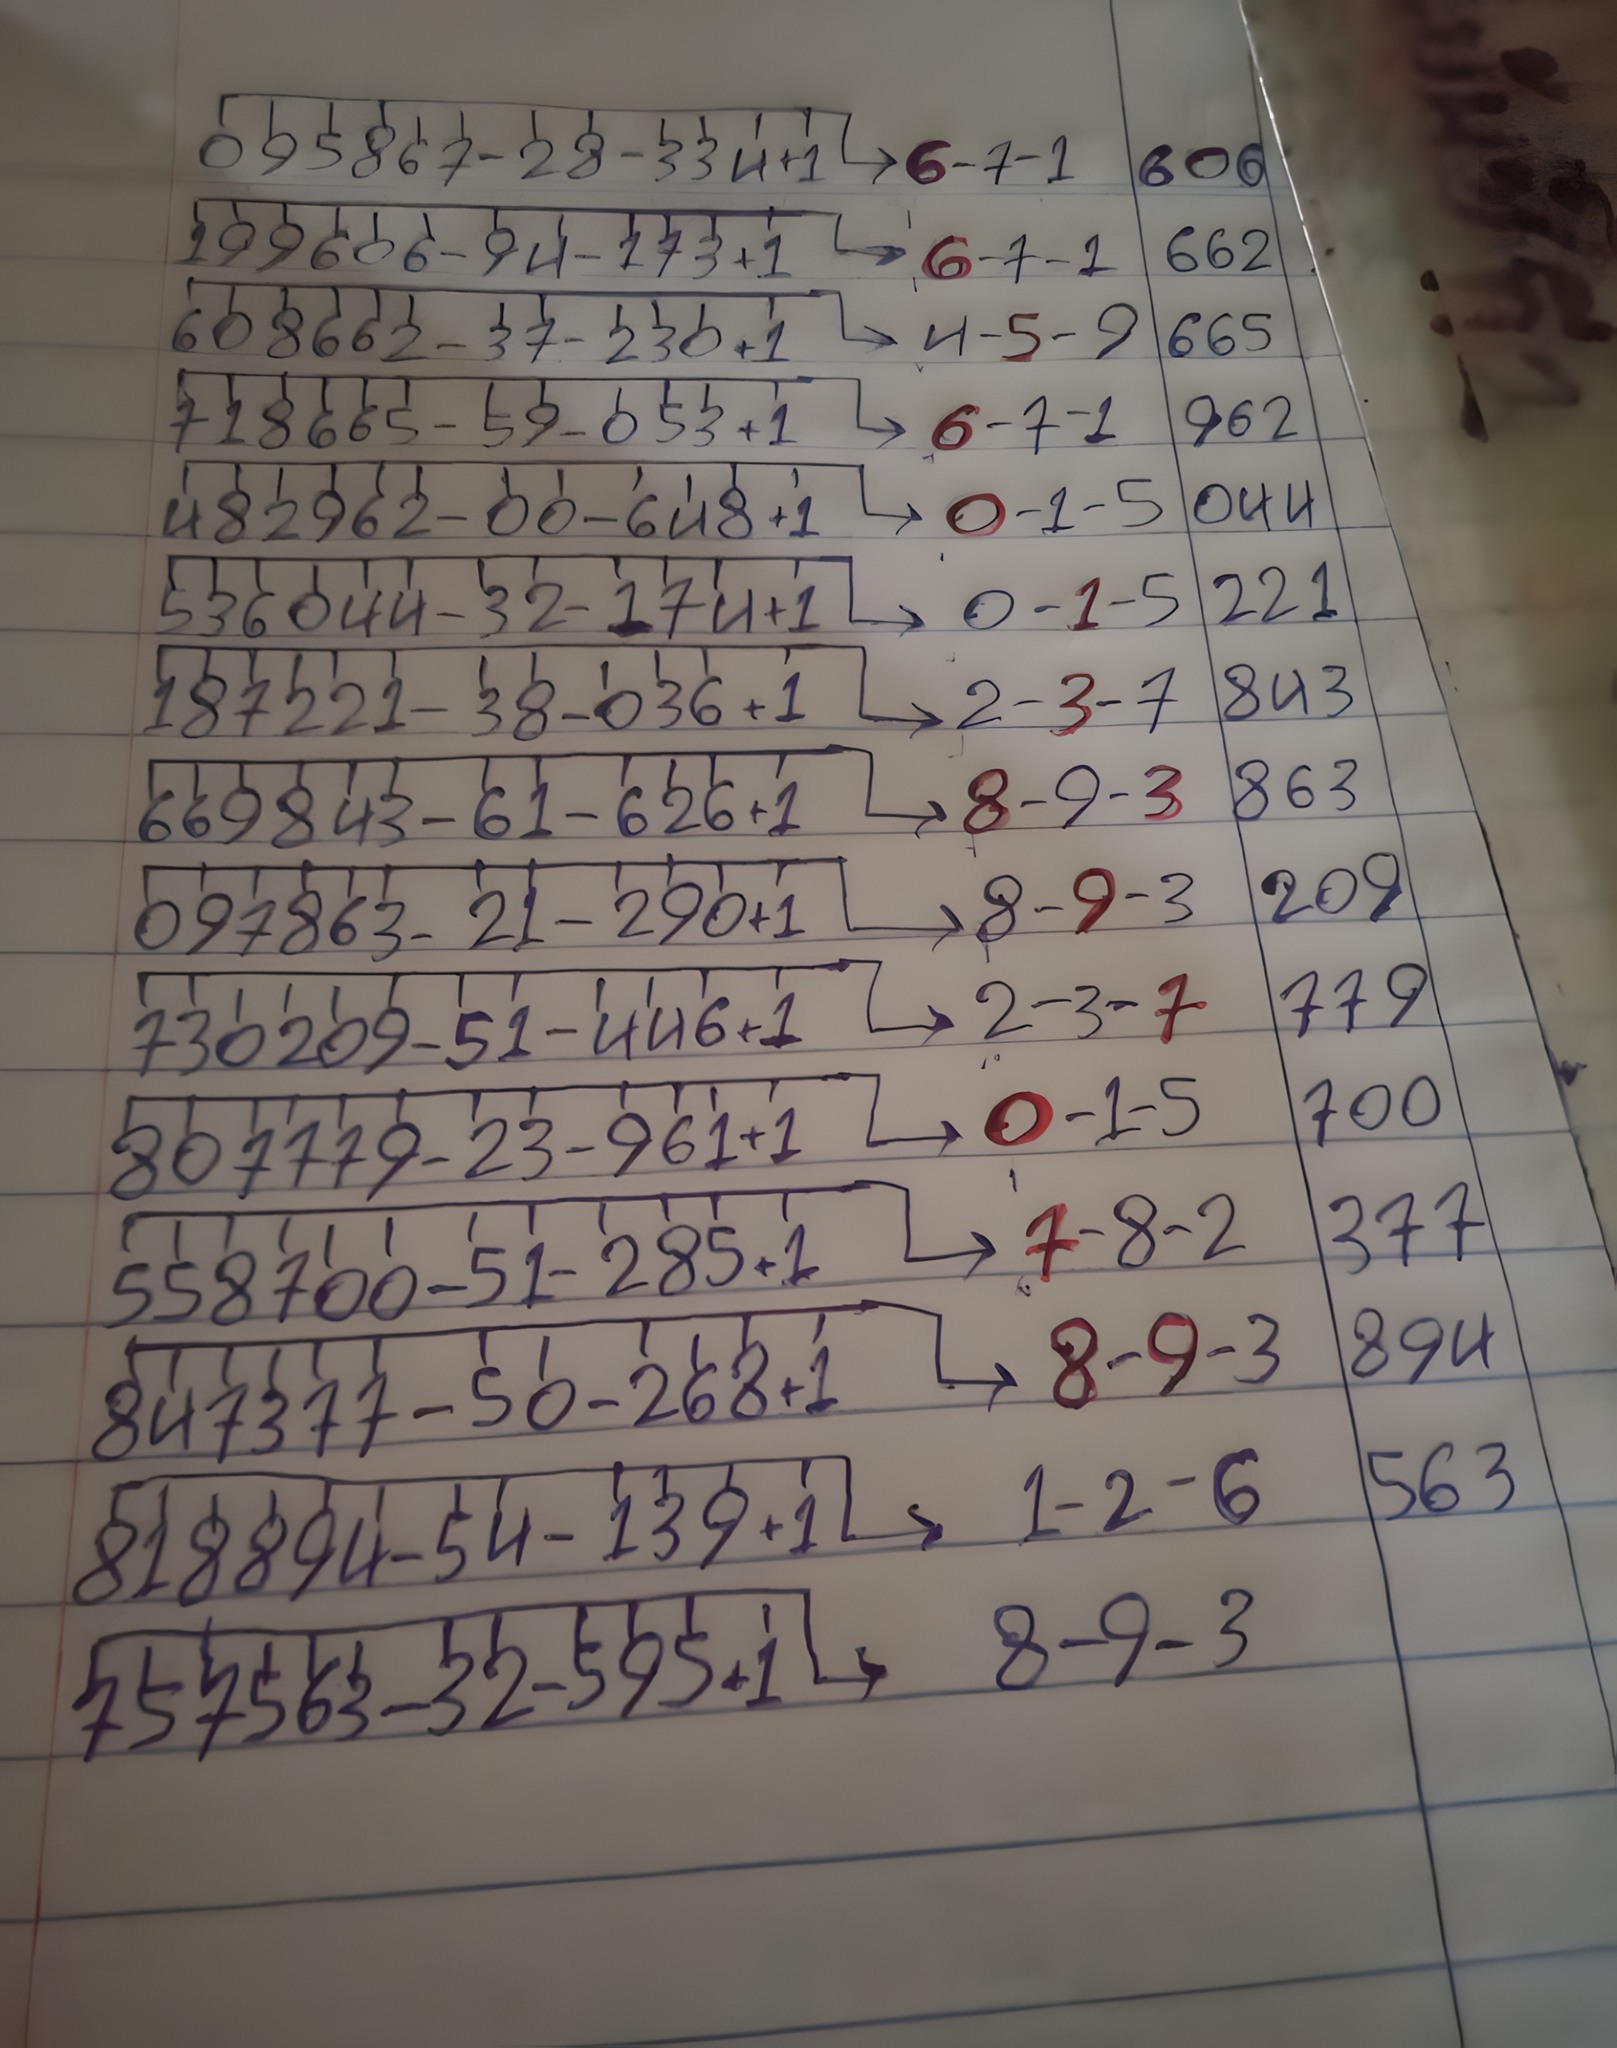 095867-28-334+1 → 6-7-1 606
199606-94-173+1 → 6-7-1 662
608662-37-230+1 → 4-5-9 665
718665-59-053+1 → 6-7-1 962
482962-00-648+1 → 0-1-5 044
536044-32-174+1 → 0-1-5 221
187221-38-036+1 → 2-3-7 843
669843-61-626+1 → 8-9-3 863
097863-21-290+1 → 8-9-3 209
730209-51-446+1 → 2-3-7 779
807779-23-961+1 → 0-1-5 700
558700-51-285+1 → 7-8-2 377
847377-50-268+1 → 8-9-3 894
818894-54-139+1 → 1-2-6 563
757563-32-595+1 → 8-9-3